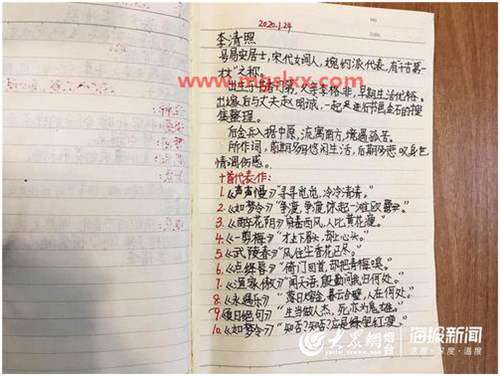 2020.1.24
李清照
号易安居士,宋代女词人,婉约派代表,有"千古第一
才女"之称
出生于书香门第,父亲李格非,早期生活优裕。
出嫁后与丈夫赵明诚,一起
集整理。
后金兵入据中原,流寓南方,境遇孤苦。
所作词,前期多写悠闲生活,后期多悲叹身世
情调伤感。
十首代表作:
1.《声声慢》"寻寻觅觅,冷冷清清。"
2.《如梦令》"争渡,争渡,惊起一滩鸥鹭。"
3.《醉花阴》"帘卷西风,人比黄花瘦。"
4.《一剪梅》"才下眉头,却上心头。"
5.《武陵春》"风住尘香花已尽。"
6.《点绛唇》"倚门回首,却把青梅嗅。"
7.《渔家傲》"闻天语,殷勤问我归何处。"
8.《永遇乐》"落日熔金,暮云合璧,人在何处。"
9.《夏日绝句》"生当做人杰,死亦为鬼雄。"
10.《如梦令》"知否?知否?应是绿肥红瘦。"
www.muslxx.com
大众网
海报新闻